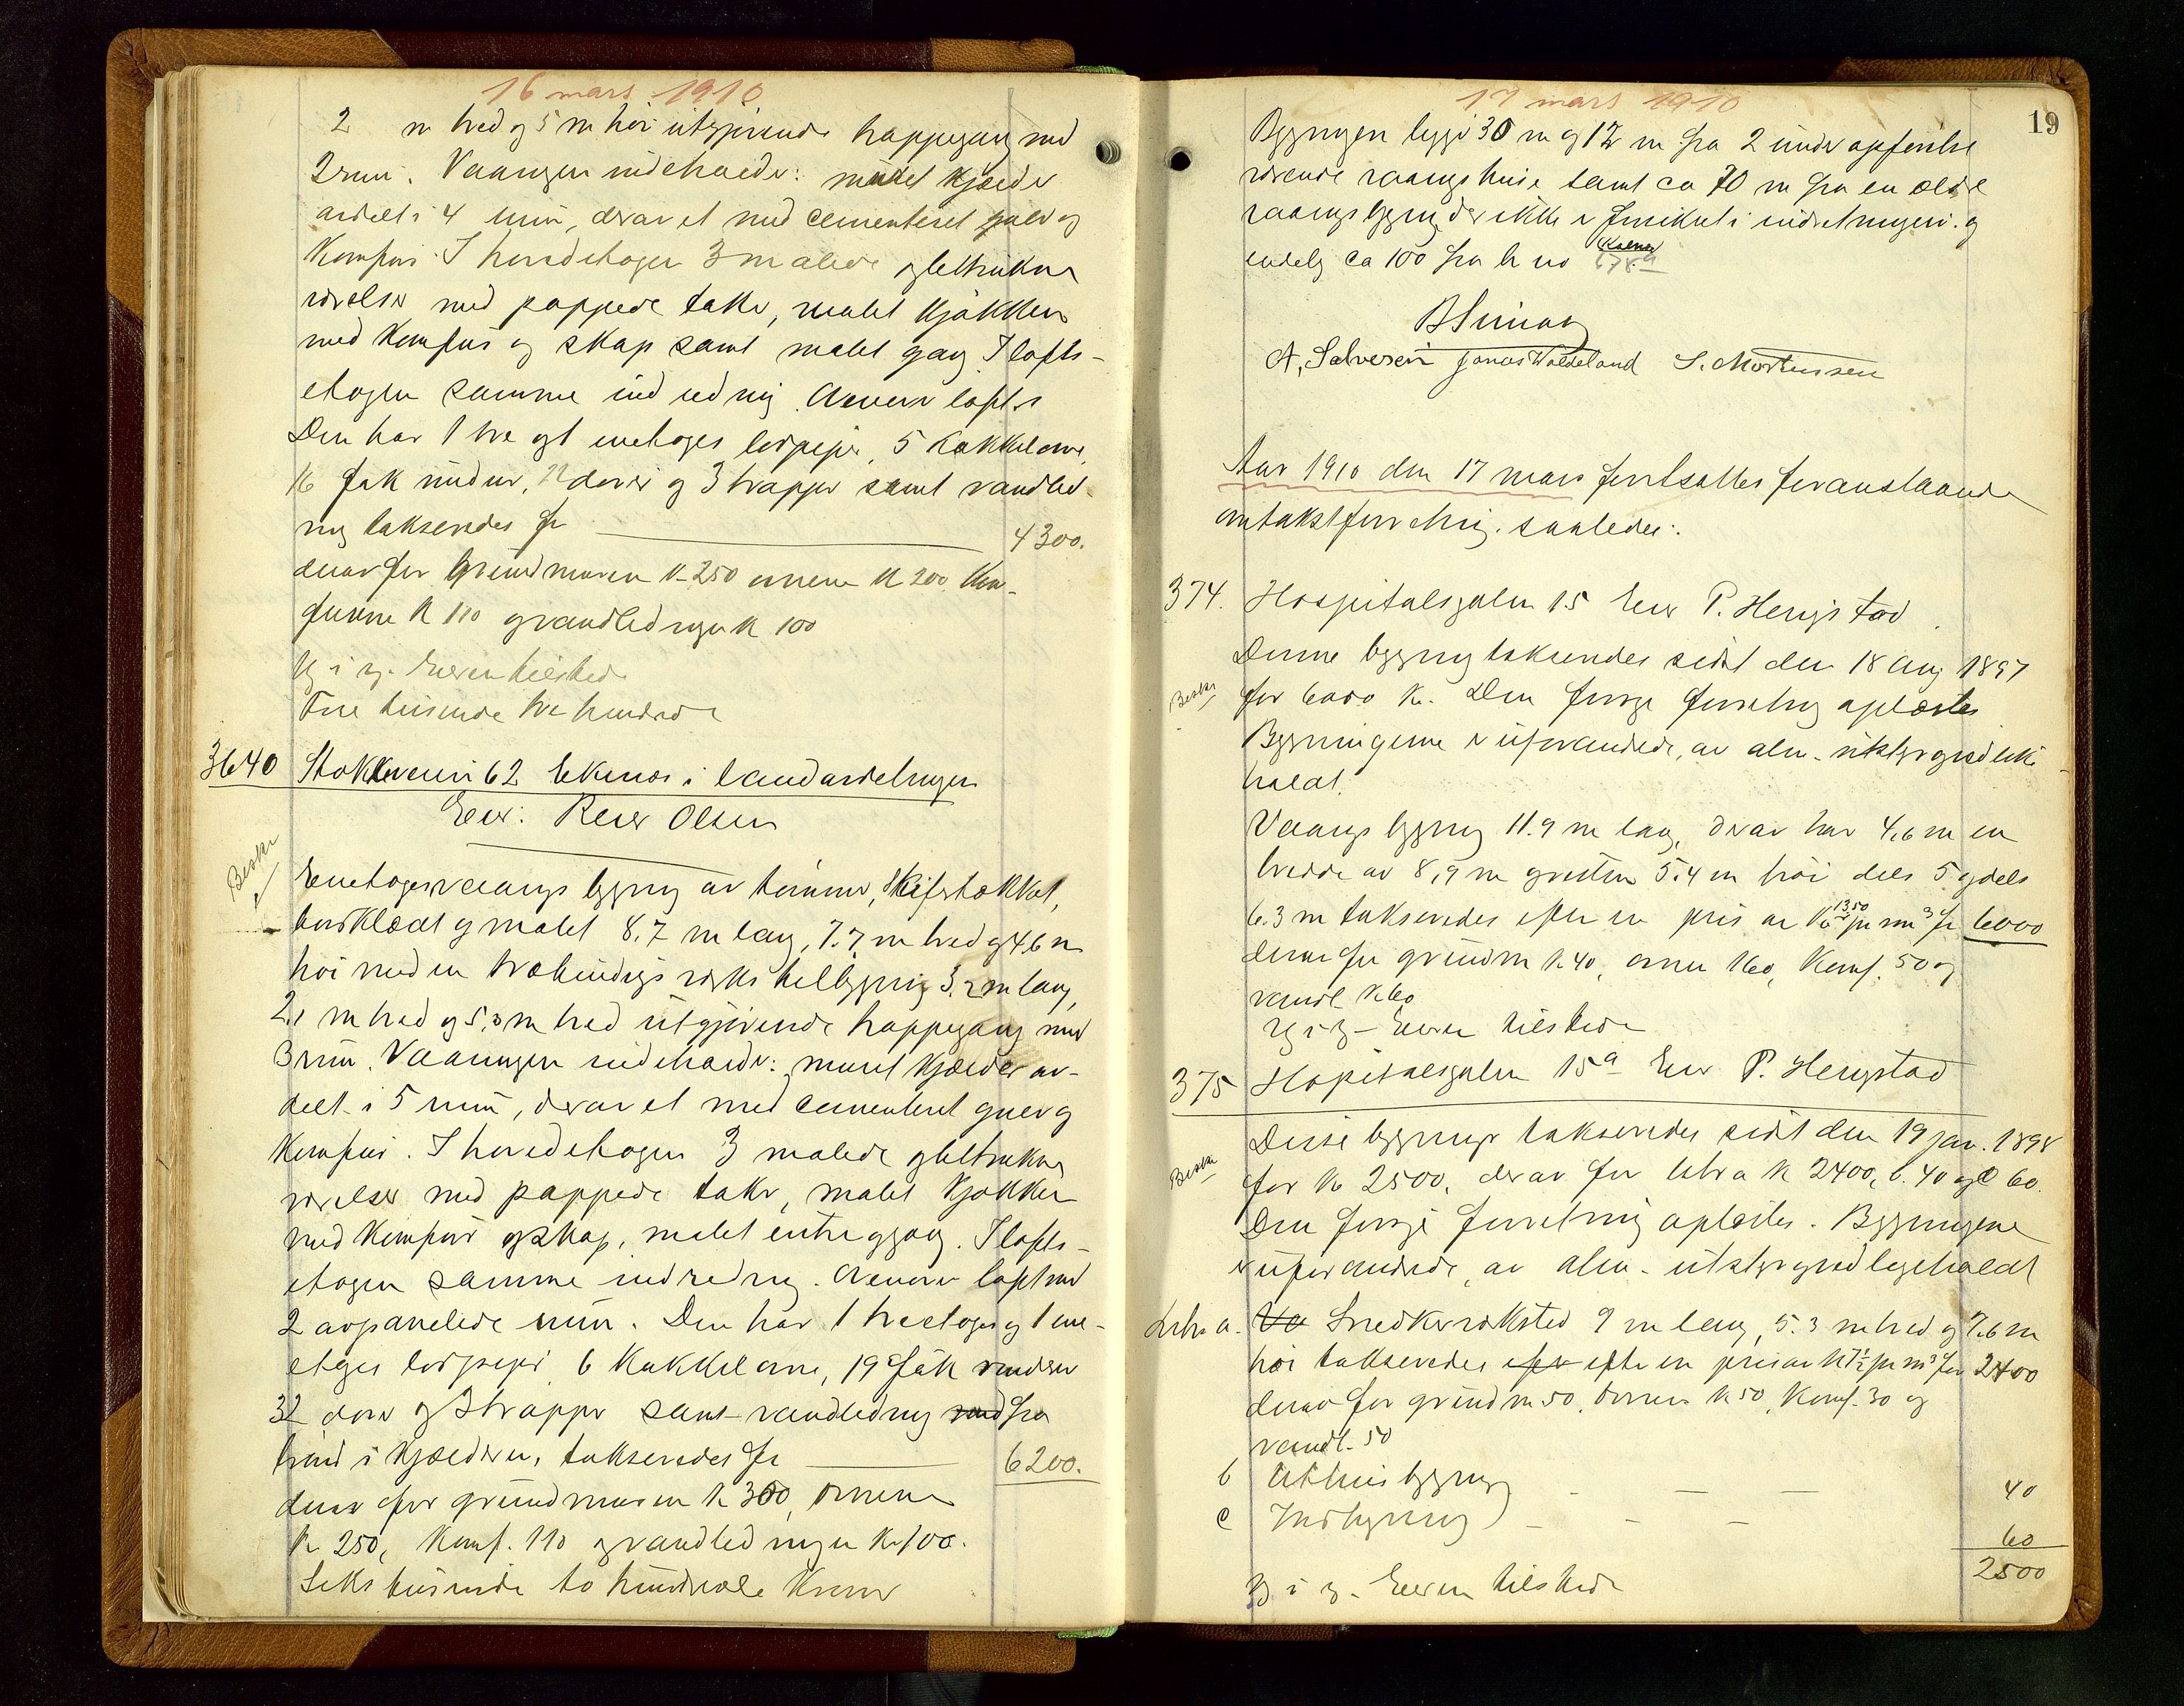 16 mars 1910
2 m bred og 5 m høi utgjørende trappegang med
2 rum. Vaaningen indeholder: muret kjælder
avdelt i 4 rum, derav et med cementeret gulv og
Komfur. I hovedetagen 3 malede og betrukne
værelser med pappede take, malet kjøkken
med Komfur og skap samt malet gang. I lofts-
etagen samme indredning. Øverst loft.
Den har 1 tre og 1 enetages 5 kakkelovne,
16 fak vinduer, dører og 3 trapper samt vandled-
ning takseredes for 4300.
derav for grundmuren K 250 ovnene K 200 Kom-
furene K 110 og vandledningen K 100
Eieren tilstede
Fire tusinde tre hundrede
3640 Stokkaveien 62 Ekenes i landavdelingen
Eier: Olsen
Beskr
Enetages vaaningsbygning av tømmer, skifertækket,
bordklædt og malet 8,7 m lang, 7,7 m bred og 4,6 m
høi med en træbindings tilbygning 3,2 m lang,
2,1 m bred og 5,3 m bred utgjørende trappegang med
3 rum. Vaaningen indeholder: muret kjælder av-
delt i 5 rum, derav et med cementeret gulv og
Komfur. I hovedetagen 3 malede og betrukne
værelser med pappede take, malet kjøkken
med Komfur og skap, malet entre og gang. I lofts-
etagen samme indredning. Øverst loft med
2 avpanelede rum. Den har 1 treetages og 1 ene-
etages 6 Kakkelovne, 19 fak vinduer
32 døre og 3 trapper samt vandledning fra
brønd i kjælderen, takseredes for 6200.
derav for grundmuren K 300, ovnene
K 250, Komf. 110 og vandledningen K 100.
Seks tusinde to hundrede Kroner
17 mars 1910
19
Bygningen ligger 30 m og 12 m fra 2 under opførelse
værende vaaningshuse samt ca 70 m fra en ældre
vaaningsbygning der ikke er forsikret i indretningen og
endelig ca 100 fra br no
A. Salvesen Jonas Waldeland S. Mortensen
Aar 1910 den 17 mars fortsattes foranstaaende
omtakstforretning saaledes:
374. Hospitalsgaten 15 Eier P. Hengstad
Denne bygning takseredes sidst den 18 aug 1897
Beskr
for 6000 K. Den forrige forretning oplæstes
Bygningerne er uforandrede, av alm. utstyr og vedlike
holdt.
Vaaningsbygning 11.9 m lang, derav har 4,6 m en
bredde av 8,9 m og resten 5,4 m høi dels 5 og dels
6.3 m takseredes efter en pris av K 13,50 pr m³ for 6000
derav for grundm K 40, ovner 160, Komf. 50 og
vandl K 60
Eieren tilstede
375 Hospitalsgaten 15a Eier P. Hengstad
Disse bygninger takseredes sidst den 19 jan. 1898
Beskr
for K 2500, derav for litra a K 2400, b. 40 og c 60.
Den forrige forretning oplæstes. Bygningerne
er uforandrede, av alm. utstyr og vedlikeholdt
Litra a. Snedkerverksted 9 m lang, 5.3 m bred og 7.6 m
høi takseredes efter en pris av K 7½ pr m³ for 2400
derav for grundm 50, ovnen K 50, Komf. 30 og
vandl. 50
b Uthusbygning - - - 40
c - - - 60
2500
Eieren tilstede